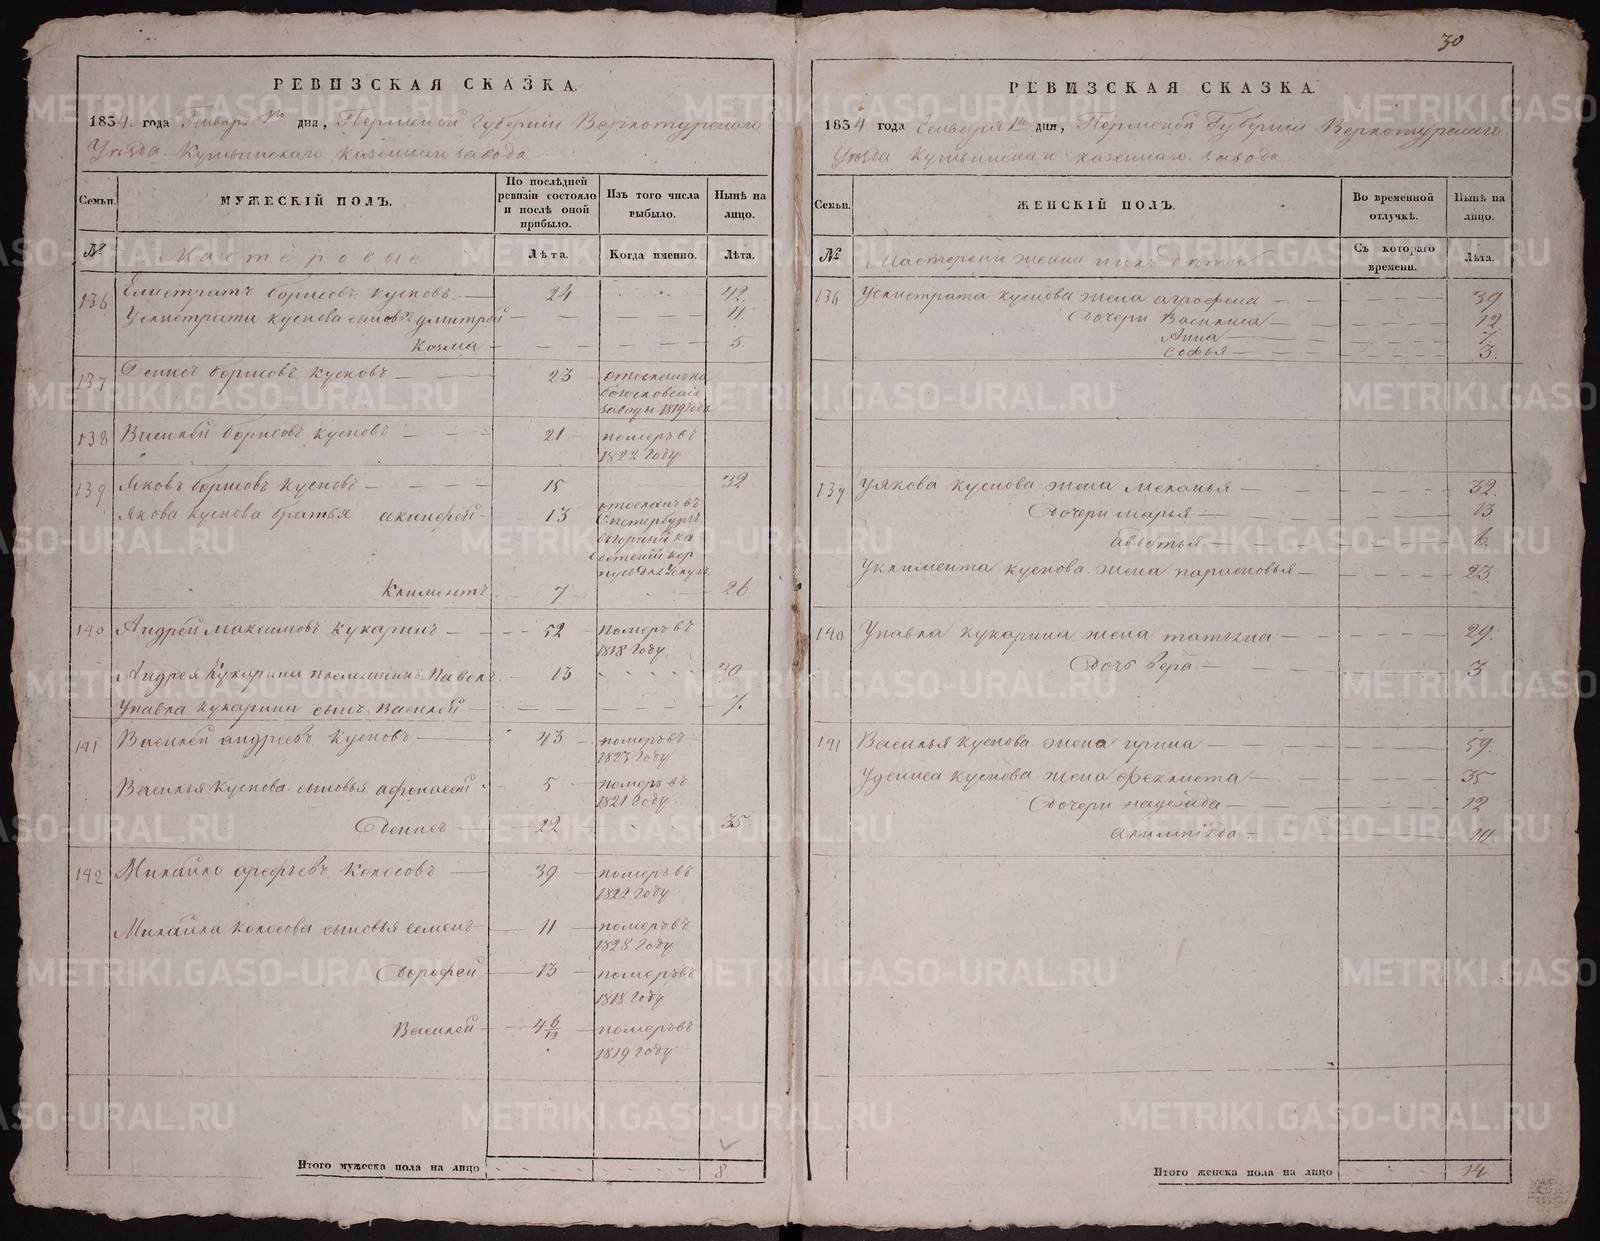 30
РЕВИЗСКАЯ СКАЗКА.
1834. года Генваря 1го дня, Пермской Губернии Верхотурскаго
Уезда Кушвинскаго казеннаго завода
Семьи.
МУЖЕСКІЙ ПОЛЪ.
По послѣдней ревизіи состояло и послѣ оной прибыло.
Изъ того числа выбыло.
Нынѣ на лицо.
№
Мастеровые
Лѣта.
Когда именно.
Лѣта.
136 Елистратъ борисовъ кусковъ 24 42.
Уелистрата кускова сыновья дмитрей 11
козма 5.
137 Денисъ борисовъ кусковъ 23 отосланъ на
богословскіе
заводы 1819 года
138 Василей борисовъ кусковъ 21 померъ въ
1822 году
139 Яковъ борисовъ кусковъ 15 32
Якова кускова братья акинфей 13 отосланъ въ
С: петербургъ
вгорный ка
детский кор
пусъ
Климентъ 7 26
140 Андрей максимовъ кукаринъ 52 померъ въ
1818 году
Андрея кукарина племянникъ Павелъ 13 30
Упавла кукарина сынъ Василей 7.
141 Василей андреевъ кусковъ 43 померъ въ
1823 году
Василья кускова сыновья афонасей 5 померъ въ
1821 году
Денисъ 22 35
142 Михайло арефьевъ колосовъ 39 померъ въ
1822 году
Михайла колосова сыновья семенъ 11 померъ въ
1828 году
Дорофей 13 померъ въ
1818 году
Василей 4 6/12 померъ въ
1819 году
Итого мужеска пола на лицо 8
РЕВИЗСКАЯ СКАЗКА.
1834 года Генваря 1го дня, Пермской Губернии Верхотурскаго
Уезда Кушвинскаго казеннаго завода
Семьи.
ЖЕНСКІЙ ПОЛЪ.
Во временной отлучкѣ.
Нынѣ на лицо.
№
Мастерския жены ихъ
Съ котораго времени.
Лѣта.
136 Уелистрата кускова жена агрофена 39
Дочери Василиса 12
Анна 7
Софья 3.
139 Уякова кускова жена меланья 32.
Дочери марья 13
авдотья 6
Уклимента кускова жена парасковья 23.
140 Упавла кукарина жена татьяна 29.
Дочь вера 3
141 Василья кускова жена ирина 59.
Удениса кускова жена феклиста 35
Дочери надежда 12
алимпіада 10
Итого женска пола на лицо 14
METRIKI.GASO-URAL.RU